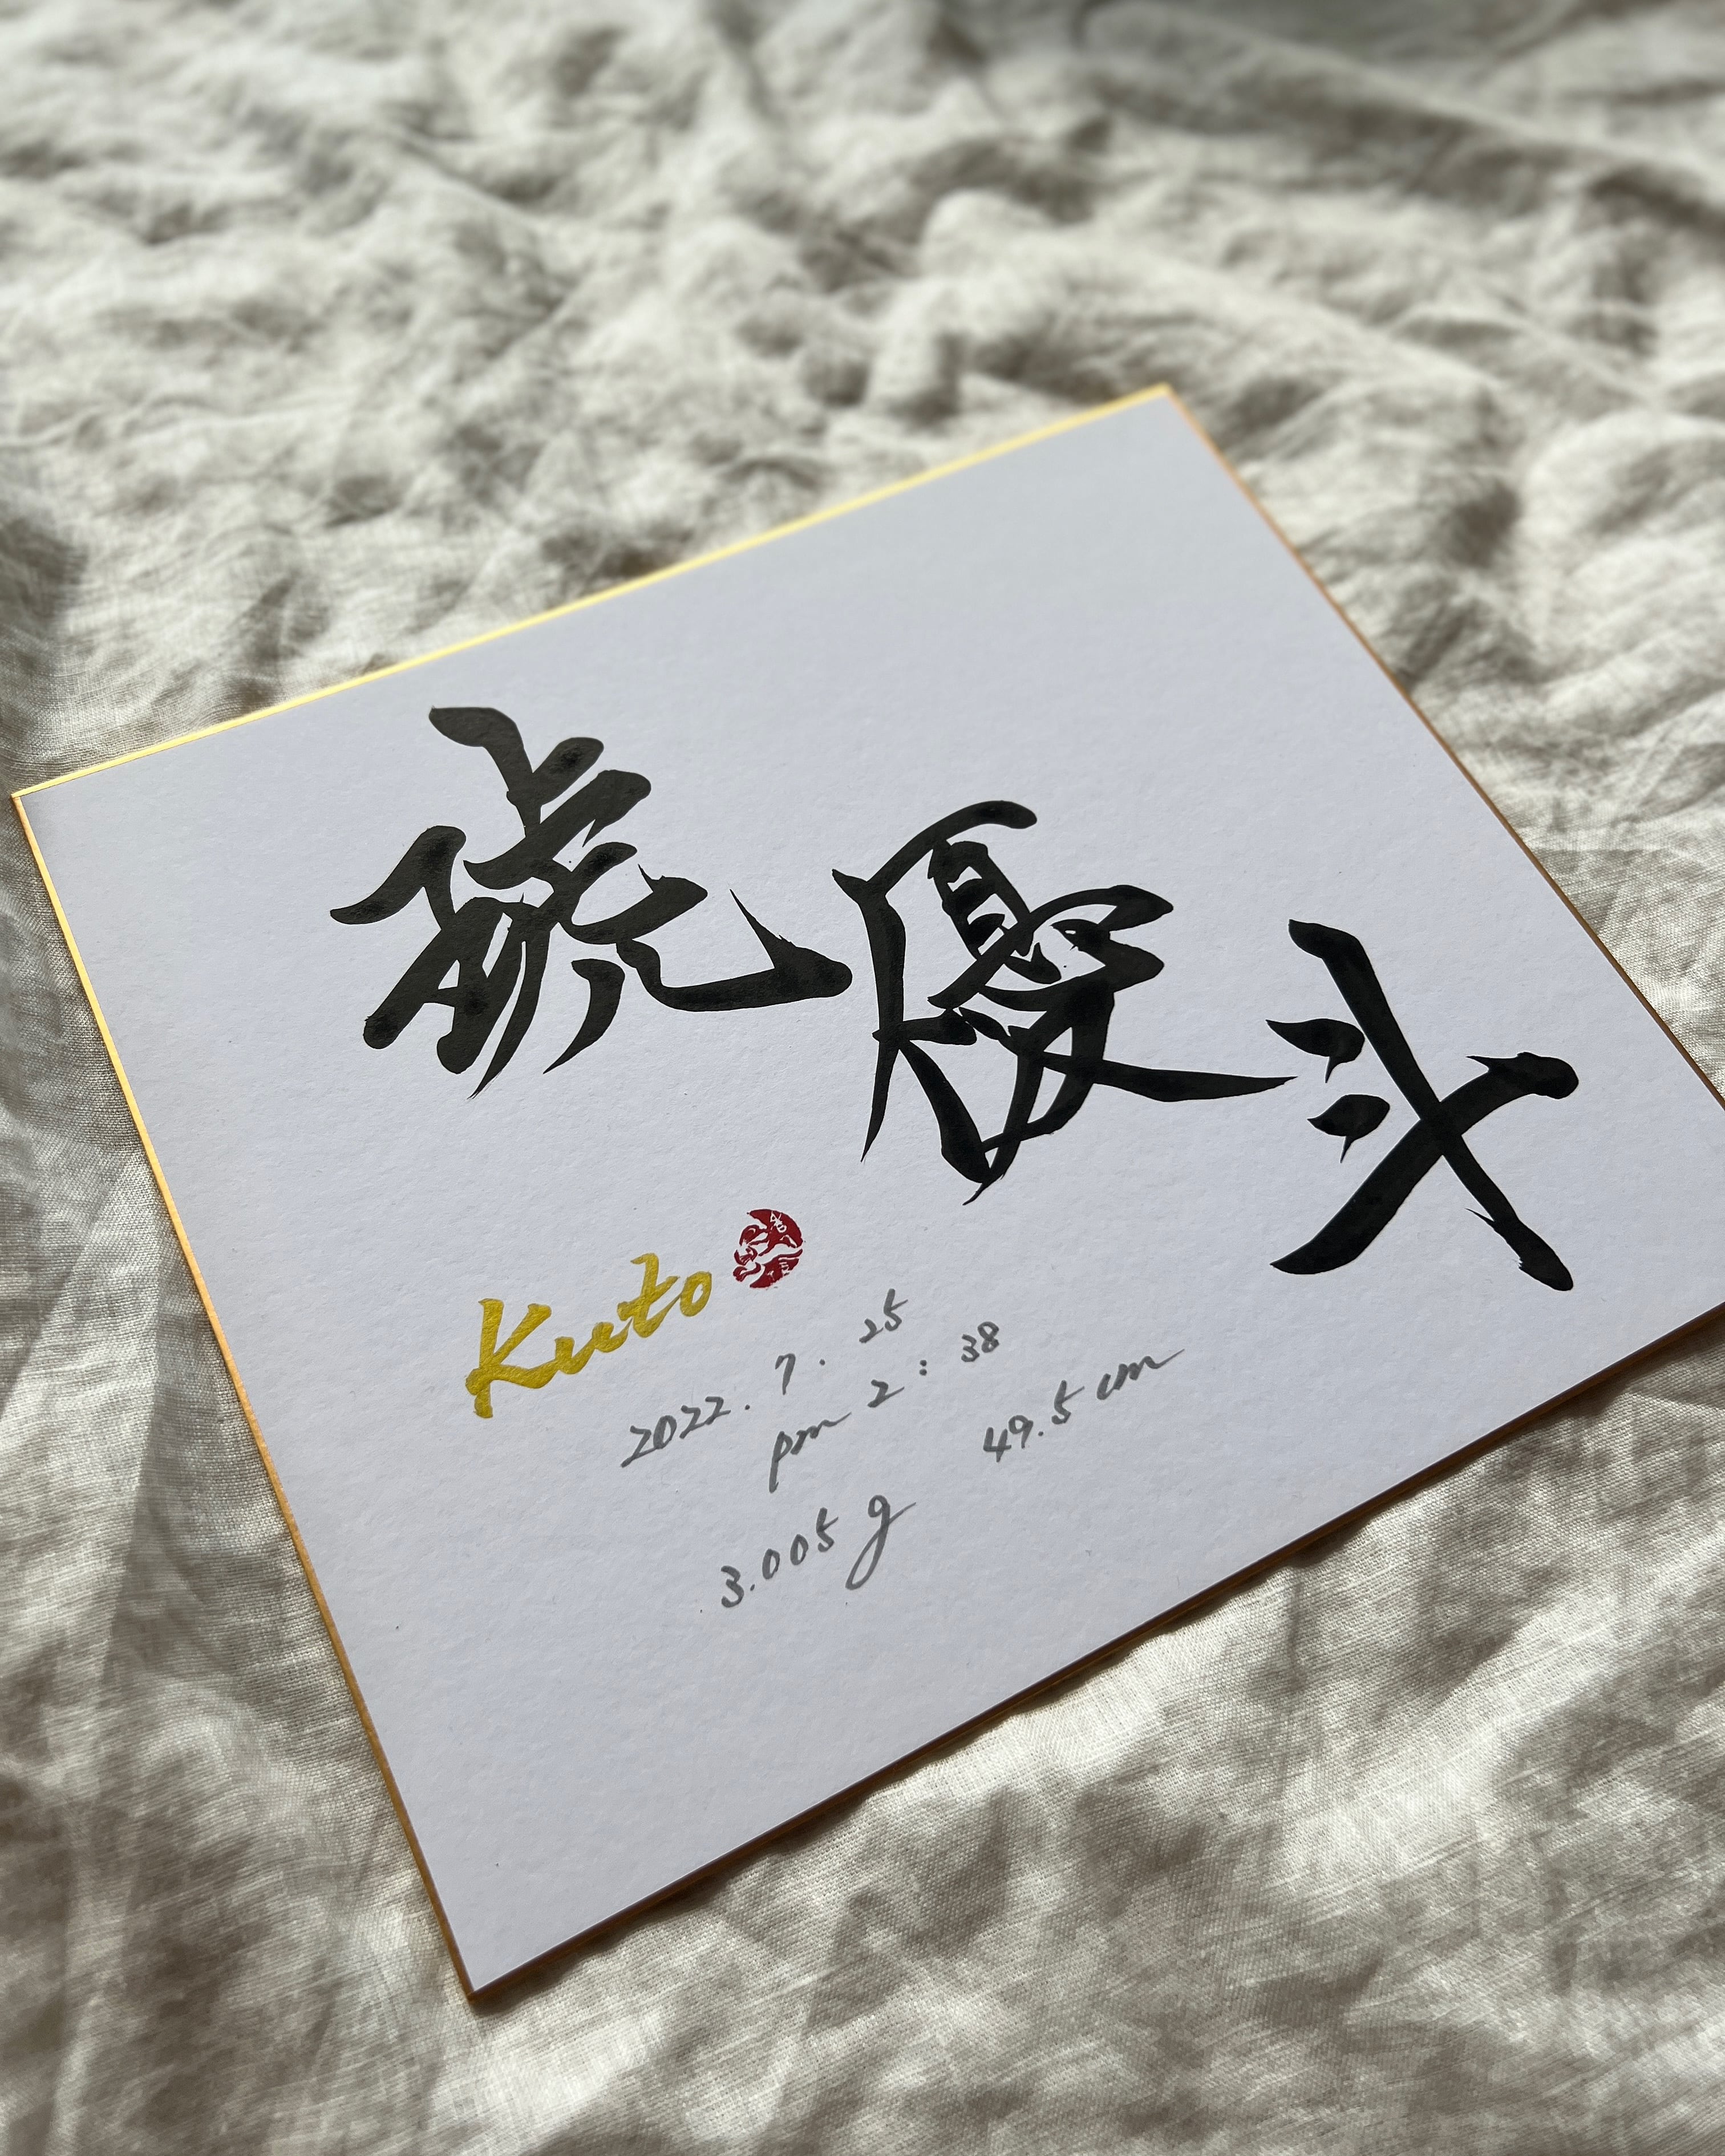 琥優斗
Kuto
2022.7.25
pm 2:38
3.005g 49.5cm